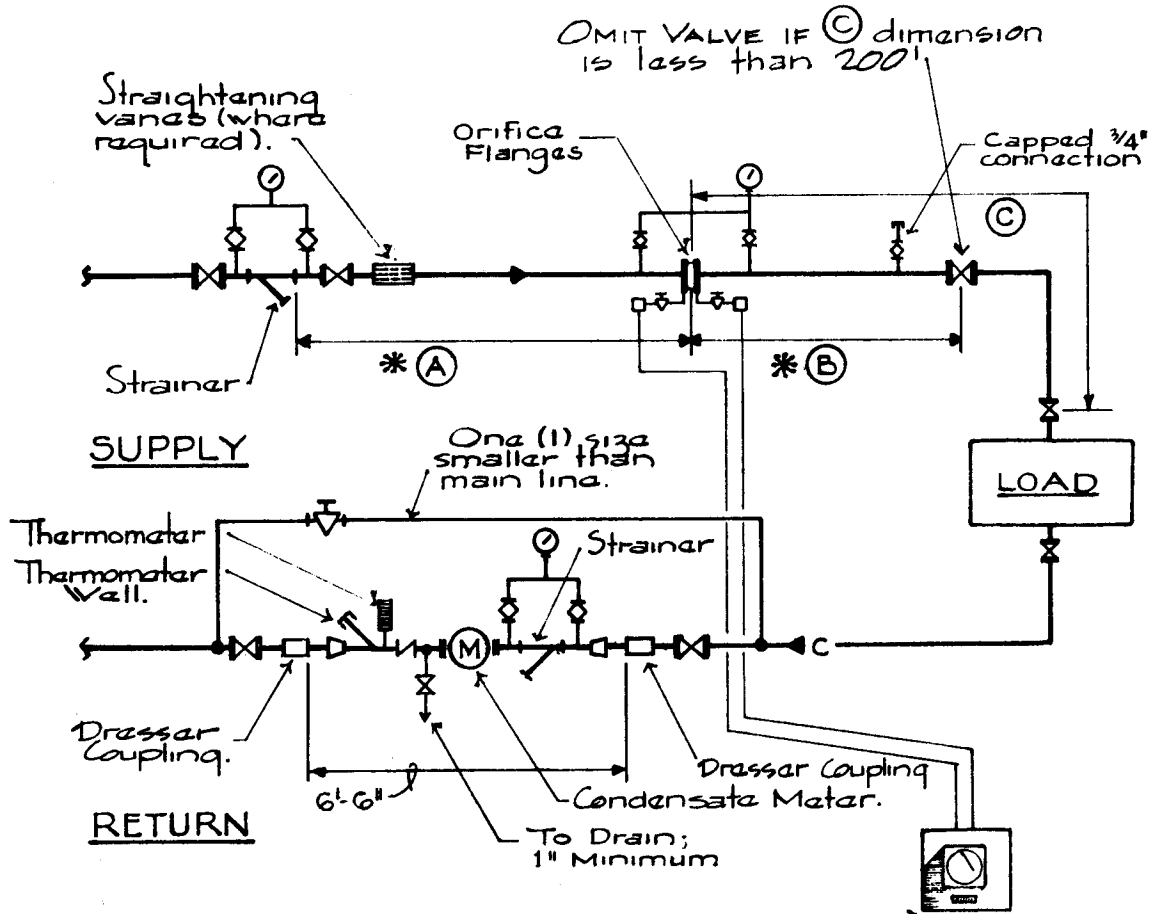 OMIT VALVE IF Ⓒ dimension
is less than 200'
Straightening
vanes (where
required).
Orifice
Flanges
Capped 3/4"
connection
C
* A
* B
Strainer
SUPPLY
One (1) size
smaller than
main line.
LOAD
Thermometer
Thermometer
Well.
Strainer
M
C
Dresser
Coupling.
6'-6"
Dresser Coupling
Condensate Meter.
RETURN
To Drain;
1" Minimum